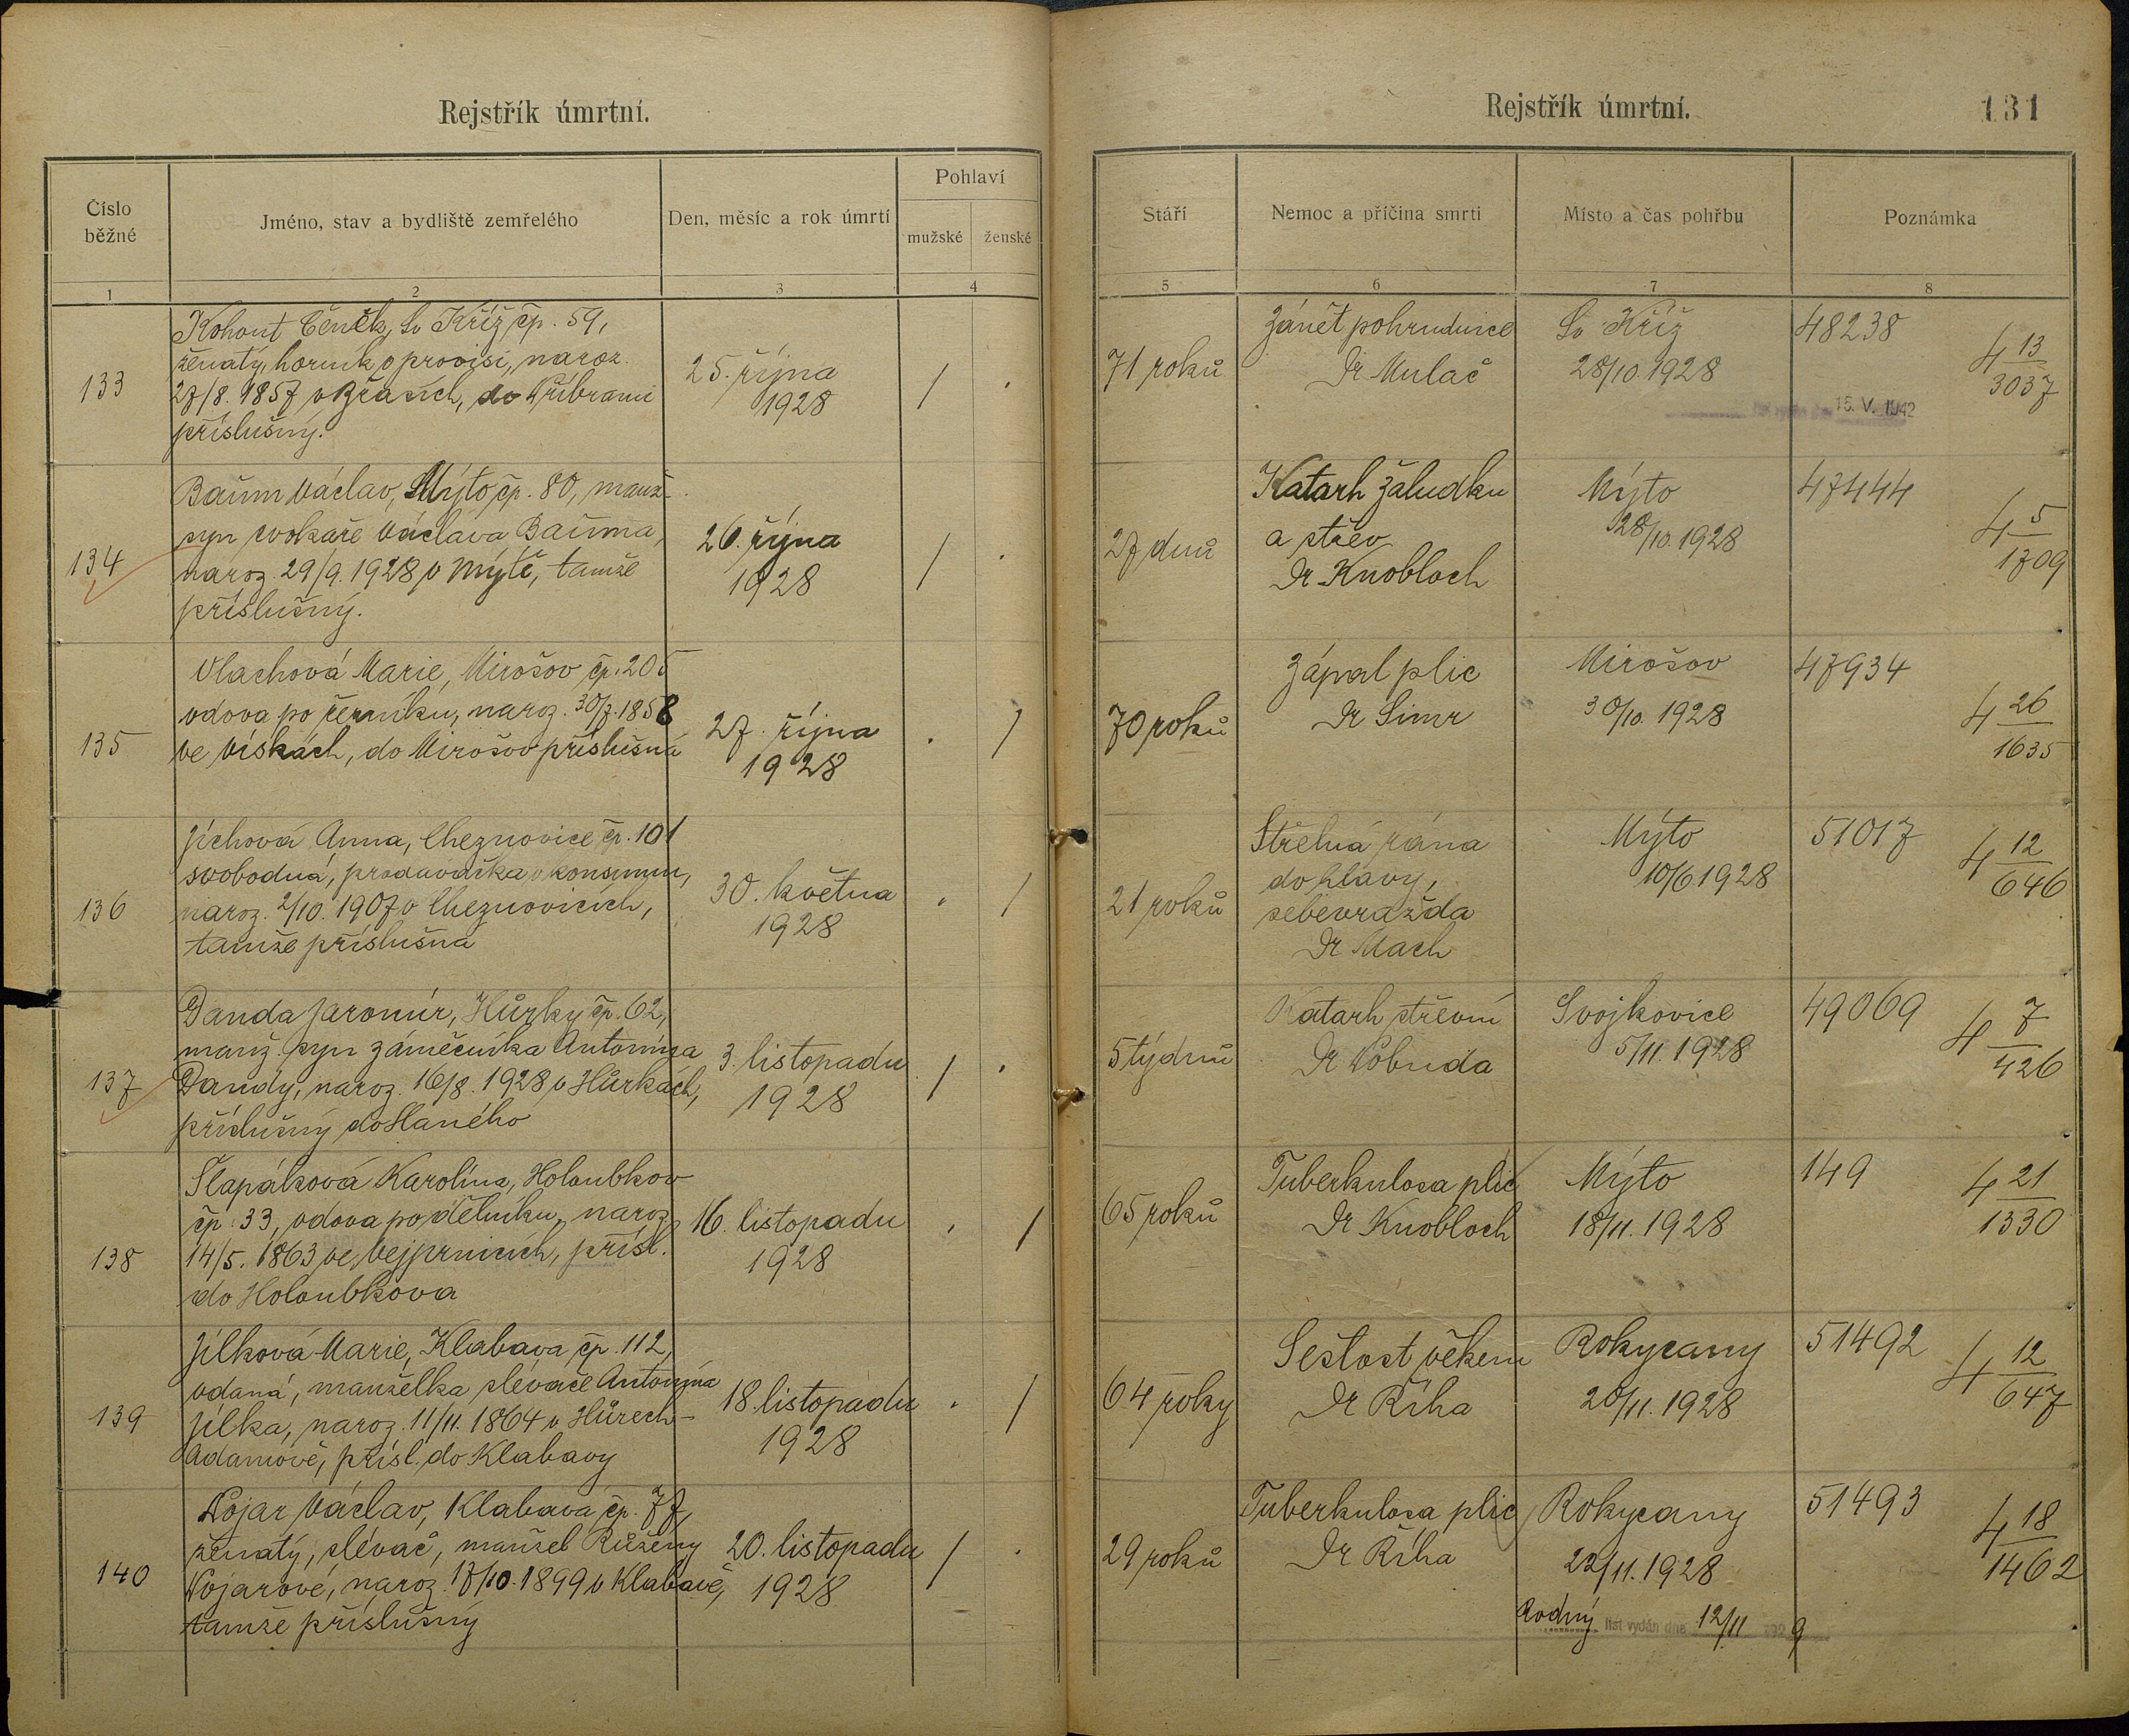 Rejstřík úmrtní.
Číslo
běžné
Jméno, stav a bydliště zemřelého
Den, měsíc a rok úmrtí
Pohlaví
mužské
ženské
1
2
3
4
133
Kohout Čeněk, Sv Kříž čp. 59,
ženatý, horník v provisi, naroz.
27/8. 1857 v Břasích, do Příbrami
příslušný.
25. října
1928
/
.
134
Baum Václav, Mýto čp. 80, manž.
syn cvokaře Václava Bauma,
naroz. 29/9. 1928 v Mýtě, tamže
příslušný.
26. října
1928
/
.
135
Vlachová Marie, Mirošov čp. 205
vdova po řezníku, naroz. 30/7. 1858
ve Vískách, do Mirošov příslušná
27. října
1928
.
/
136
Jíchová Anna, Cheznovice čp. 101
svobodná, prodavačka v konsumu,
naroz. 2/10. 1907 v Cheznovicích,
tamže příslušná
30. května
1928
.
/
137
Danda Jaromír, Hůrky čp. 62,
manž. syn zámečníka Antonína
Dandy, naroz. 16/8. 1928 v Hůrkách,
příslušný do Slaného
3. listopadu
1928
/
.
138
Šlapáková Karolina, Holoubkov
čp. 33, vdova po dělníku, naroz.
14/5. 1863 ve Vejprnicích, přísl.
do Holoubkova
16. listopadu
1928
.
/
139
Jílková Marie, Klabava čp. 112,
vdaná, manželka slévače Antonína
Jílka, naroz. 11/11. 1864 v Hůrech-
Adamově, přísl. do Klabavy
18. listopadu
1928
.
/
140
Nojar Václav, Klabava čp. 77,
ženatý, slévač, manžel Růženy
Nojarové, naroz. 17/10. 1899 v Klabavě,
tamže příslušný
20. listopadu
1928
/
.
Rejstřík úmrtní.
131
Stáří
Nemoc a příčina smrti
Místo a čas pohřbu
Poznámka
5
6
7
8
71 roků
Zánět pohrudnice
Dr Mulač
Sv Kříž
28/10. 1928
48238
4 13/3037
16. V. 1942
27 dnů
Katarh žaludku
a střev
Dr Knobloch
Mýto
28/10. 1928
47444
4 5/1709
70 roků
Zápal plic
Dr Simr
Mirošov
30/10. 1928
47934
4 26/1635
21 roků
Střelná rána
do hlavy,
sebevražda
Dr Mach
Mýto
10/6. 1928
51017
4 12/646
5 týdnů
Katarh střevní
Dr
Svojkovice
5/11. 1928
49069
4 7/426
65 roků
Tuberkulosa plic
Dr Knobloch
Mýto
18/11. 1928
149
4 21/1330
64 roky
Sešlost věkem
Dr Říha
Rokycany
20/11. 1928
51492
4 12/647
29 roků
Tuberkulosa plic
Dr Říha
Rokycany
22/11. 1928
51493
4 18/1462
Rodný list vydán dne 12/11 1929